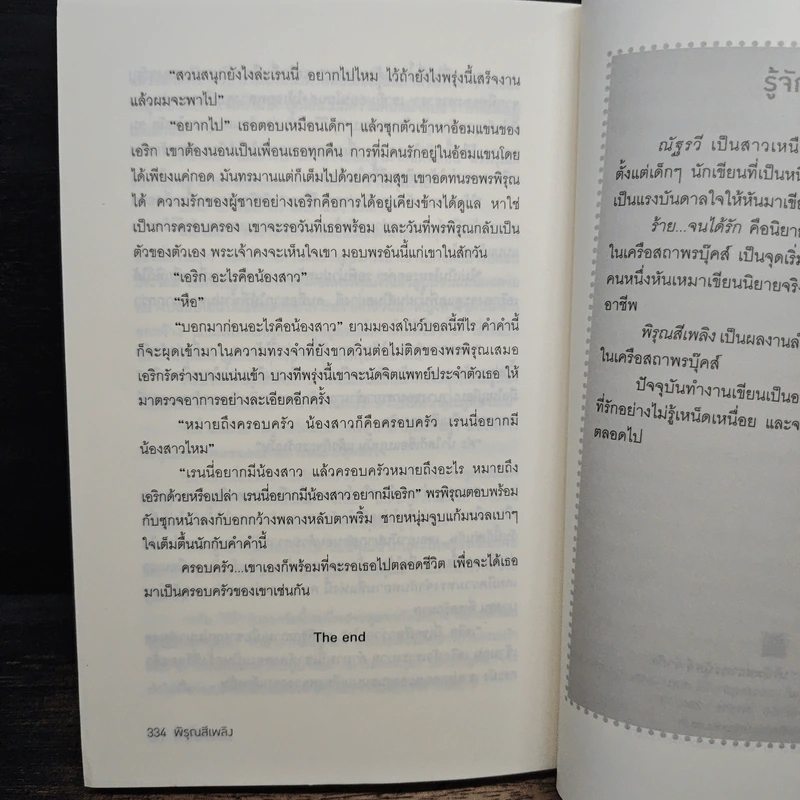 “สวนสนุกยังไงล่ะเรนนี่ อยากไปไหม ไว้ถ้ายังไงพรุ่งนี้เสร็จงาน
แล้วผมจะพาไป”
“อยากไป” เธอตอบเหมือนเด็กๆ แล้วซุกตัวเข้าหาอ้อมแขนของ
เอริก เขาต้องนอนเป็นเพื่อนเธอทุกคืน การที่มีคนรักอยู่ในอ้อมแขนโดย
ได้เพียงแค่กอด มันทรมานแต่ก็เต็มไปด้วยความสุข เขาอดทนรอพรพิรุณ
ได้ ความรักของผู้ชายอย่างเอริกคือการได้อยู่เคียงข้างได้ดูแล หาใช่
เป็นการครอบครอง เขาจะรอวันที่เธอพร้อม และวันที่พรพิรุณกลับเป็น
ตัวของตัวเอง พระเจ้าคงจะเห็นใจเขา มอบพรอันนี้แก่เขาในสักวัน
“เอริก อะไรคือน้องสาว”
“หือ”
“บอกมาก่อนอะไรคือน้องสาว” ยามมองสโนว์บอลนี้ทีไร คำคำนี้
ก็จะผุดเข้ามาในความทรงจำที่ยังขาดวิ่นต่อไม่ติดของพรพิรุณเสมอ
เอริกรัดร่างบางแน่นเข้า บางทีพรุ่งนี้เขาจะนัดจิตแพทย์ประจำตัวเธอ ให้
มาตรวจอาการอย่างละเอียดอีกครั้ง
“หมายถึงครอบครัว น้องสาวก็คือครอบครัว เรนนี่อยากมี
น้องสาวไหม”
“เรนนี่อยากมีน้องสาว แล้วครอบครัวหมายถึงอะไร หมายถึง
เอริกด้วยหรือเปล่า เรนนี่อยากมีน้องสาว อยากมีเอริก” พรพิรุณตอบพร้อม
กับซุกหน้าลงกับอกกว้างพลางหลับตาพริ้ม ชายหนุ่มจูบแก้มนวลเบาๆ
ใจเต็มตื้นนักกับคำคำนี้
ครอบครัว...เขาเองก็พร้อมที่จะรอเธอไปตลอดชีวิต เพื่อจะได้เธอ
มาเป็นครอบครัวของเขาเช่นกัน
The end
334 พิรุณสีเพลิง
รู้จัก
ณัฐรวี เป็นสาวเหนือ
ตั้งแต่เด็กๆ นักเขียนที่เป็นหนึ
เป็นแรงบันดาลใจให้หันมาเขีย
ร้าย...จนได้รัก คือนิยาย
ในเครือสถาพรบุ๊คส์ เป็นจุดเริ่ม
คนหนึ่งหันเหมาเขียนนิยายจริง
อาชีพ
พิรุณสีเพลิง เป็นผลงานลำ
ในเครือสถาพรบุ๊คส์
ปัจจุบันทำงานเขียนเป็นอ
ที่รักอย่างไม่รู้เหน็ดเหนื่อย และจ
ตลอดไป